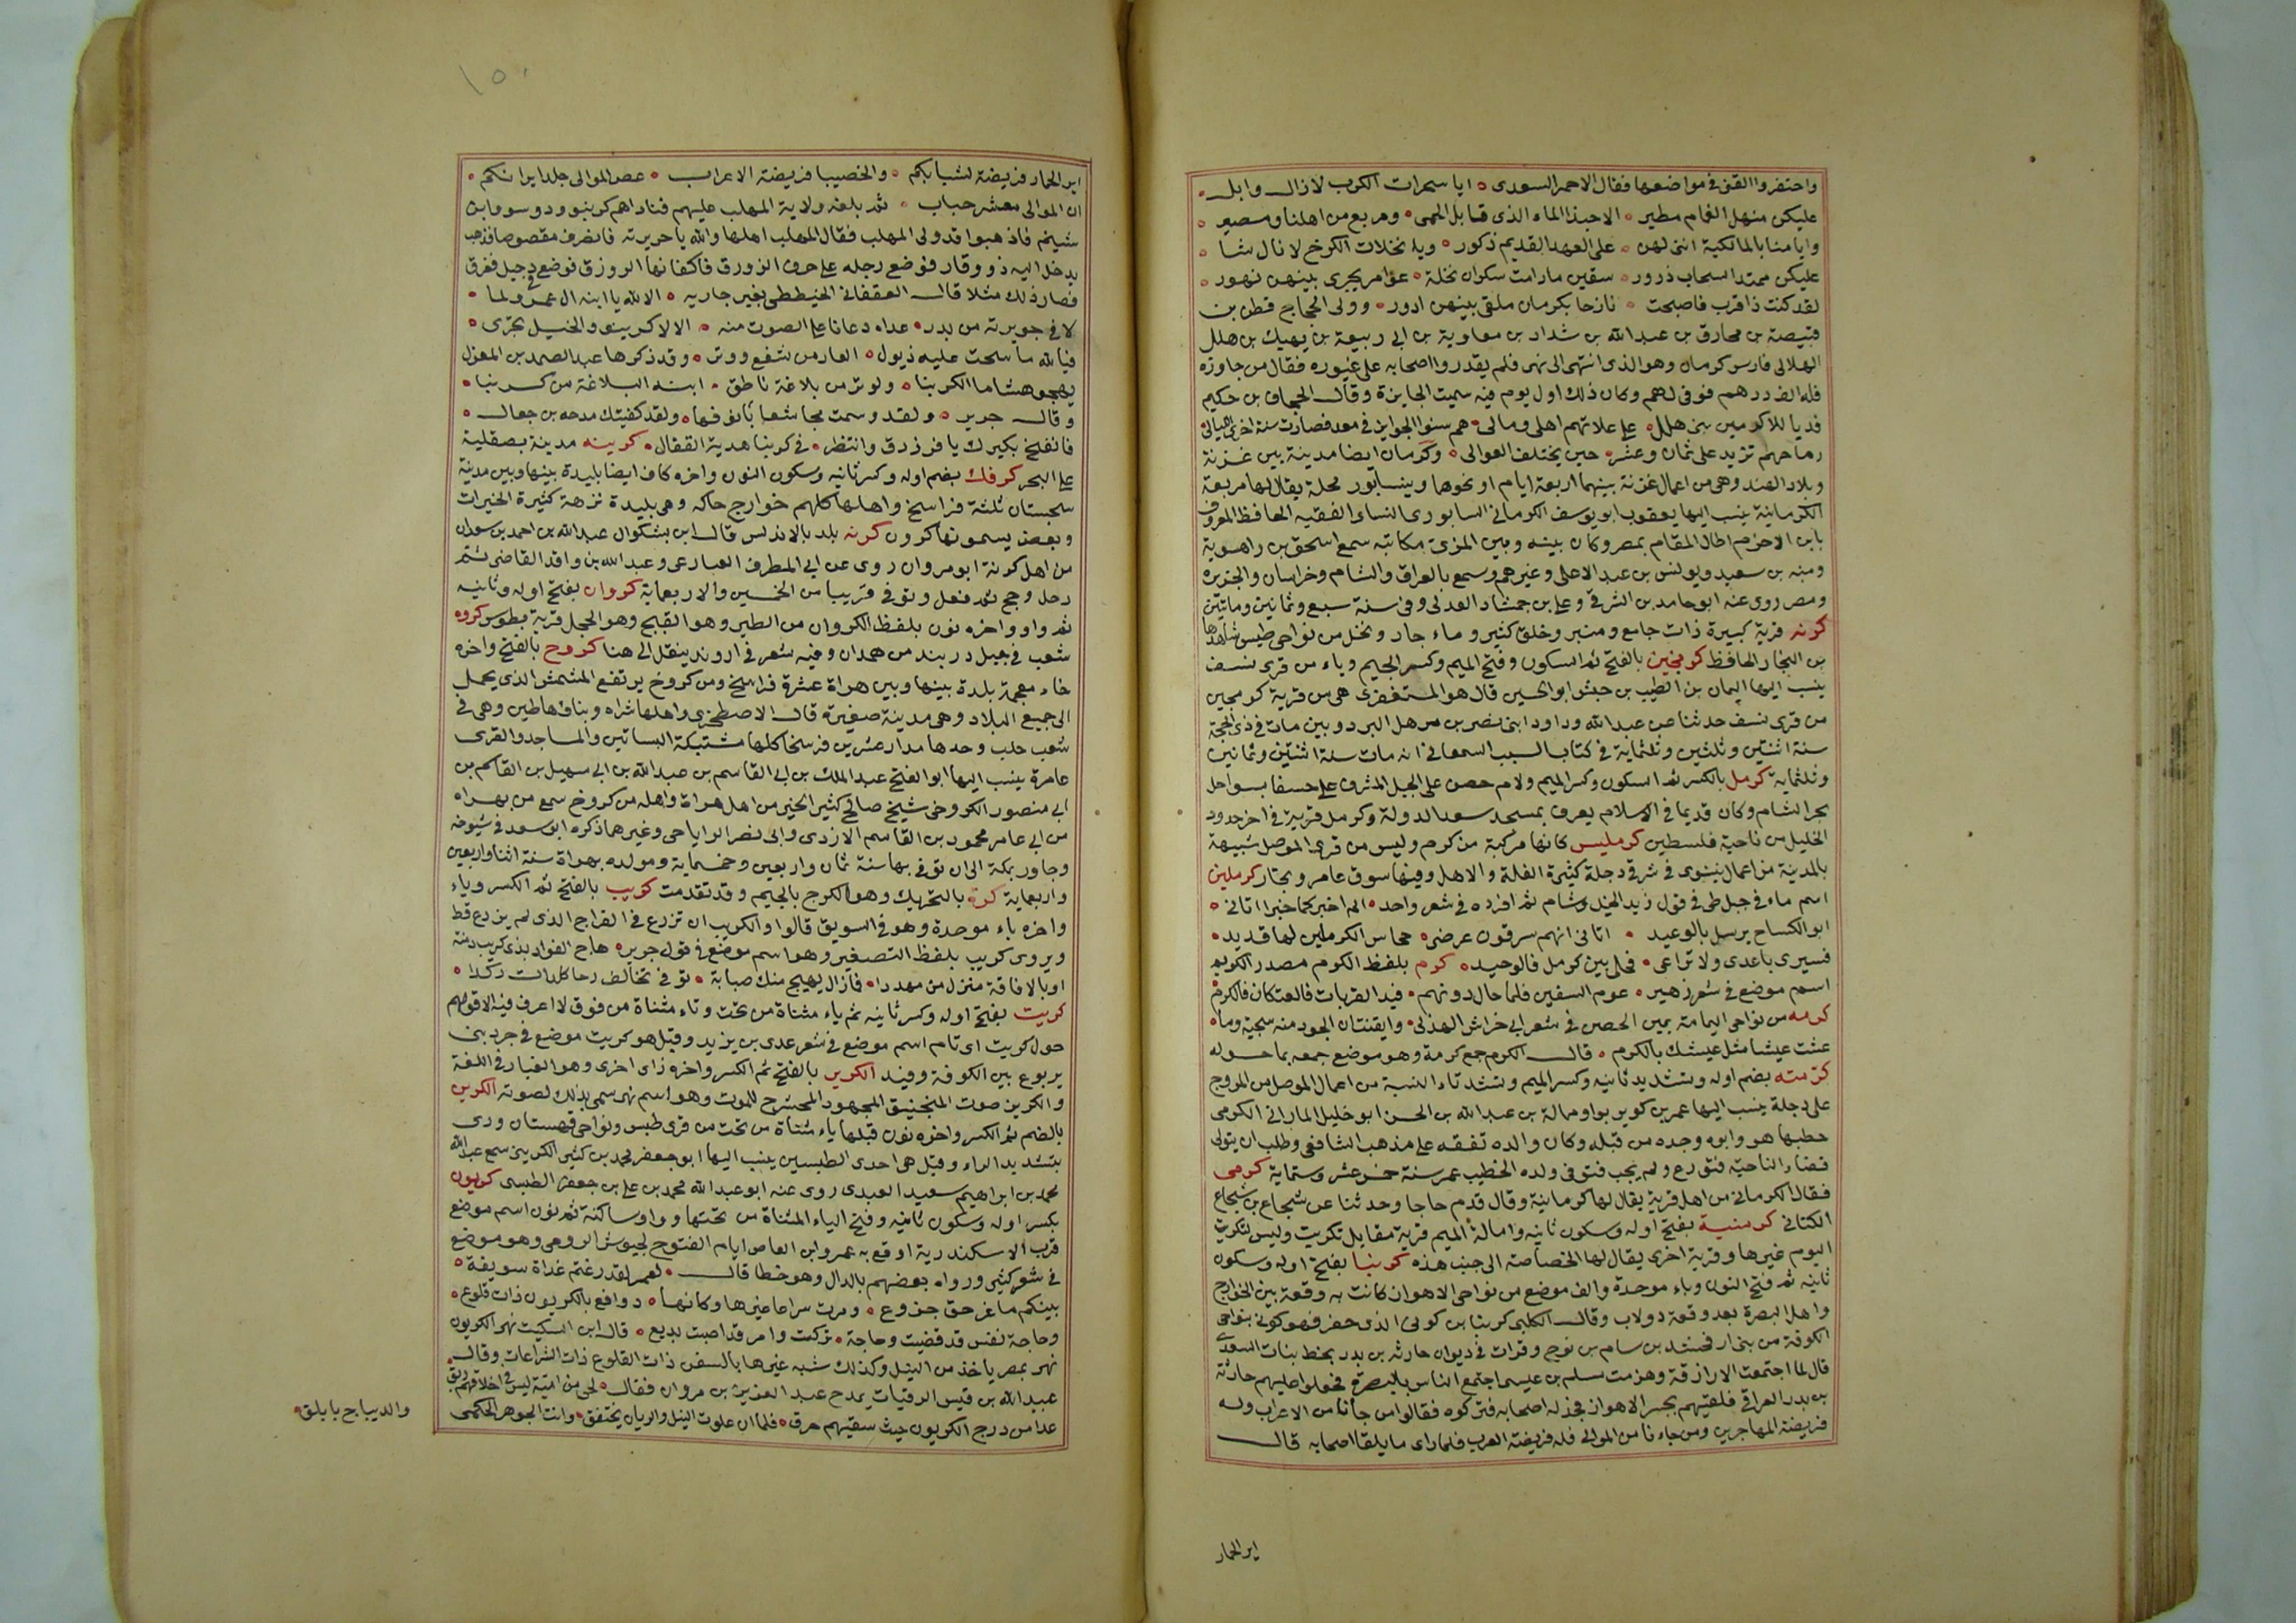 واحتفروا القنى فى مواضعها فقال الاحمر السعدى ايا سمرات الكرب لازال وابل
عليكن منهل الغمام مطير الا حبذا الماء الذى قابل الحمى ومربع من اهلنا ومصير
وايامنا بالمالكية اننى لهن على العهد القديم ذكور ويا نخلات الكرخ لا زال
عليكن ممتد السحاب ذرور سقين مادامت بكرمان نخلة عوامر تجرى بينهن نهور
لقد كنت ذا قرب فاصبحت نازحا بكرمان ملقى بينهن ادور وولى الحجاج قطن بن
قبيصة بن مخارق بن عبد الله بن شداد بن معاوية بن ابى ربيعة بن نهيك بن هلال
الهلالى فارس وكرمان وهو الذى انتهى الى نهر فلم يقدر اصحابه على عبوره فقال من جاوزه
فله الف درهم فوفى لهم وكان ذلك اول يوم فيه سميت الجايزة وقال الجحاف بن حكيم
فديا للاكرمين بنى هلال على علاتهم اهلى ومالى هم سنوا الجوايز فى معد فصارت سنة اخرى الليالى
رماحهم تزيد على ثمان وعشر حين يختلف العوالى وكرمان ايضا مدينة بين غزنة
وبلاد الهند وهى من اعمال غزنة بينهما اربعة ايام او نحوها وبنيسابور محلة يقال لها مربعة
الكرمانية ينسب اليها يعقوب ابو يوسف الكرمانى النيسابورى الفقيه الحافظ المعروف
بابن الاخرم اطال المقام بمصر وكان بينه وبين المزنى مكاتبه سمع اسحق بن راهويه
وقتيبة بن سعيد ويونس بن عبد الاعلى وغيرهم وسمع بالعراق والشام وخراسان والجزيرة
ومصر روى عنه ابو حامد بن الشرقى وعلى بن حمشاد العدل وفى سنة سبع وثمانين ومائتين
كرنه قرية كبيرة ذات جامع ومنبر وخلق كثير وماء جار ونخل من نواحى طبس شاهدها
بن النجار الحافظ كرمجين بالفتح ثم السكون وفتح الميم وكسر الجيم وياء من قرى نسف
ينسب اليها اليمان بن الطيب بن حبش ابو الحسين قال هو المستغفرى هى من قرية كرمجين
من قرى نسف حدثنا عن عبد الله وداود ابنى نصر بن سهل البزدويين مات فى ذى الحجة
سنة اثنتين وثلثين وثلثماية فى كتاب النسب السمعانى انه مات سنة اثنتين وثمانين
وثلثماية كرمل بالكسر ثم السكون وكسر الميم ولام حصن على الجبل المشرف على حيفا بسواحل
بحر الشام وكان قديما فى الاسلام يعرف بمسجد سعد الدولة وكرمل قرية فى اخر حدود
الخليل من ناحية فلسطين كرمليس كانها مركبة من كرم وليس من قرى الموصل شبيهة
بالمدينة من اعمال نينوى فى شرقى دجلة كثيرة الغلة والاهل وفيها سوق عامر وتجار كرملين
اسم ماء فى جبل طى فى قول زيد الخيل وشام ثم افرده فى شعر واحد الم اخبركما خبرا اتانى
ابو الكساح يرسل بالوعيد اتانى انهم مزقون عرضى جحاش الكرملين لها فديد
فسيرى يا عدى ولا تراعى فحلى بين كرمل فالوحيد كرم بلفظ الكرم مصدر الكريم
اسم موضع فى شعر زهير عوم السفين فلما حال دونهم فيد القريات فالعتكان فالكرم
كرمه من نواحى اليمامة بمين الحصن فى شعر ابى خراش الهذلى وايقنت ان الجود منه سجية وما
عشت عيشا مثل عيشك بالكرم قال الكرم جمع كرمة وهو موضع جمعه بما حوله
كرمته بضم اوله وتشديد ثانيه وكسر الميم وتشد تاء النسبة من اعمال الموصل من المروج
على دجلة ينسب اليها عمر بن كوير بن عبد الله بن الحسن ابو خليل المارانى الكرمى
خطبها هو وابوه وجده من قبله وكان والده تفقه على مذهب الشافعى وطلب ان يتولى
قضاء الناحية فتورع ولم يجب فتوفى ولده الخطيب عمر سنة خمس عشر وستماية كرمى
فقال الكرمانى من اهل قرية يقال لها كرمانية وقال قدم حاجا وحدثنا عن شجاع بن شجاع
الكتانى كرمنية بفتح اوله وسكون ثانيه وامالة الميم قرية مقابل تكريت وليس لتكريت
اليوم غيرها وقرية اخرى يقال لها الخصاصة الى جنب هذه كرنبا بفتح اوله وسكون
ثانيه ثم فتح النون وباء موحدة والف موضع من نواحى الاهواز كانت به وقعة بين الخوارج
واهل البصرة بعد وقعة دولاب وقال الكلبى كرنبا بن كوثى الذى حفر نهر كوثى بنواحى
الكوفة من بنى ارفخشد بن سام بن نوح وقرات فى ديوان حارثه بن بدر بخط بنات السعدى
قال لما اجتمعت الازارقة وهزمت مسلم بن عبيس اجتمع الناس بالبصرة فجعلوا عليهم حارثة
بن بدر الغدانى فلقيهم بجسر الاهواز فخذله اصحابه فتركوه فقالوا من جأنا من الاعراب وله
فريضة المهاجرين ومن جاءنا من الموالى فله فريضة العرب فلما راى ما يلقا اصحابه قال
اير الحمار
١٥٠
اير الحمار فريضة لشبابكم والخصيبا فريضة الاعراب عصر الموالى جلد ايرانكم
ان الموالى معشر خباب ثم بلغه ولاية المهلب عليهم فناداهم كرنبوا ودولبوا واين
شيتم فاذهبوا قد ولى المهلب فقال المهلب اهلها والله يا حويرثه فانصرف مقصوصا فذهب
يدخل اليه زورقا فوضع رجله على حرف الزورق فانكفا بها الزورق فوضع دجيل فغرق
فصار ذلك مثلا قال العقفانى الخيططى بغير جاريه الا لله يا ابنه ال عمرو لما
لاقى حويرثه من بدر غداه دعانا على الصوت منه الا لا كرنبوا والخيل تجرى
فيا لله ما سحبت عليه ذيول العار من شفع ووتر وقد ذكرها عبد الصمد بن المعذل
يهجو هشاما الكرنبا ولو تر من بلاغة ناطق ابنه البلاغة من كرنبا
وقال جرير ولقد وسمت مجاشعا بانوفها ولقد كفيتك مدحه بن جعال
فانفخ بكيرك يا فرزدق وانتظر فى كرنبا هدية القفال كرنيه مدينة بصقلية
على البحر كرفك بضم اوله وكسر ثانيه وسكون النون واخره كاف ايضا بليدة بينها وبين مدينة
سجستان ثلثة فراسخ واهلها كلهم خوارج حاكه وهى بليدة نزهة كثيرة الخيرات
وبعض يسمونها كرون كرنه بلد بالاندلس قال ابن بشكوال عبد الله بن احمد بن سعدان
من اهل كونة ابو مروان روى عن ابى المطرف العبارعى وعبد الله بن واقد القاضى ثم
رحل وحج ثم قفل وتوفى قريبا من الخمسين والاربعماية كروان بفتح اوله وثانيه
ثم واو واخره نون بلفظ الكروان من الطير وهو القبج وهو الحجل قرية بطوس كروه
شعب فى جبل دربند من همدان وفيه شعر فى اروند ينقل الى هنا كروخ بالفتح واخره
خاء معجمة بلدة بينها وبين هراة عشرة فراسخ ومن كروخ يرتفع المشمش الذى يحمل
الى جميع البلاد وهى مدينة صغيرة قال الاصطخرى واهلها شراه وبناها طين وهى فى
شعب جبل وحدها مدار عشرين فرسخا كلها مشتبكة البساتين والمساجد والقرى
عامرة ينسب اليها ابو الفتح عبد الملك بن ابى القاسم بن عبد الله بن ابى سهيل بن القاسم بن
ابى منصور الكروخى شيخ صالح كثير الخير من اهل هراة واهله من كروخ سمع من بهراه
من ابى عامر محمود بن القاسم الازدى وابى نصر الرياحى وغيرهما ذكره ابو سعد فى شيوخه
وجاور بمكة الى ان توفى بها سنة ثمان واربعين وخمسماية ومولده بهراة سنة اثنا واربعين
واربعماية كره بالتحريك وهو الكرج بالجيم وقد تقدمت كريب بالفتح ثم الكسر وياء
واخره باء موحدة وهو فى السويق قالوا والكريب ان تزرع فى القراح الذى لم يزرع قط
ويروى كريب بلفظ التصغير وهو اسم موضع فى قول جرير هاج الفواد بذى كريب دمنة
او بالافاقة منزل من مهددا فازال يهيج منك صبابة توفى تخالف رحا كلالت ركدا
كريت بفتح اوله وكسر ثانيه ثم ياء مثناة من تحت وتاء مثناة من فوق لا اعرف فيه الا قولهم
حول كريت اى تام اسم موضع فى شعر عدى بن يزيد وقيل هو كريت موضع فى جرد بنى
يربوع بين الكوفة وفيد الكرير بالفتح ثم الكسر واخره زاى اخرى وهو الغبار فى اللغة
والكرير صوت المنجنيق المجهود المحشرج للموت وهو اسم نهر سمى بذلك لصوته الكرين
بالضم ثم الكسر واخره نون قبلها ياء مثناة من تحت من قرى طبس ونواحى قهستان وروى
بتشديد الراء وقيل هى احدى الطبسين ينسب اليها ابو جعفر محمد بن كثير الكرينى سمع عبد الله
محمد بن ابراهيم سعيد العبدى روى عنه ابو عبد الله محمد بن على بن جعفر الطبسى كريون
بكسر اوله وسكون ثانيه وفتح الياء المثناة من تحتها وواو ساكنة ثم نون اسم موضع
قرب الاسكندرية اوقع به عمرو ابن العاص ايام الفتوح لجيوش الروم وهو موضع
فى شعر كثير ورواه بعضهم بالدال وهو خطا قال لعمر لقد رغتم غداة سويقة
بينكم ما عز حق جزوع ومرت سراعا عيرها وكانها دوافع بالكريون ذات قلوع
وحاجة نفس قد قضيت وحاجة تركت وامر قد اصبت بديع قال ابن السكيت نهر الكريون
نهر بمصر ياخذ من النيل وكذلك شبه عيرها بالسفن ذات القلوع ذات الشراعات وقال
عبيد الله بن قيس الرقيات يمدح عبد العزيز بن مروان فقال لحى من امية ليس فى اخلاقهم رنق
غدا من درج الكريون حيث سقيتهم حرق فلما ان علوت النيل والريان تختفق وانت الجوهر الحكمى
والديباج يابلق